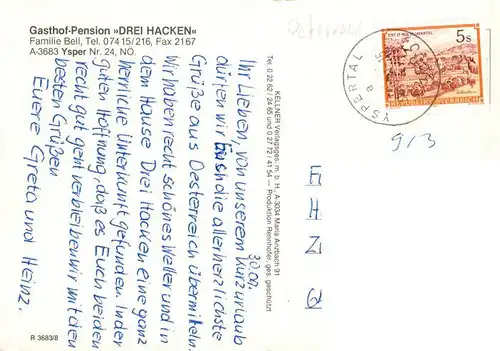 Gasthof-Pension »DREI HACKEN«
Familie Bell, Tel. 07415/216, Fax 2167
A-3683 Ysper Nr. 24, NÖ.
30.09.
Ihr Lieben, von unserem Kurzurlaub
dürfen wir Euch die allerherzlichste
Grüße aus Oesterreich übermitteln.
Wir haben recht schönes Wetter und in
dem Hause Drei Hacken eine ganz
herrliche Unterkunft gefunden. In der
guten Hoffnung, daß es Euch beiden
recht gut geht verbleiben wir mit den
besten Grüßen
Euere Greta und Heinz.
R 3683/8
KELLNER Verlagsges. m. b. H., A-3034 Maria Anzbach 91
Tel. 0 22 62 / 24 65 und 0 27 72 / 41 54 — Produktion Rennhofer, ges. geschützt
5s
REPUBLIK ÖSTERREICH
YSPERTAL
9/3